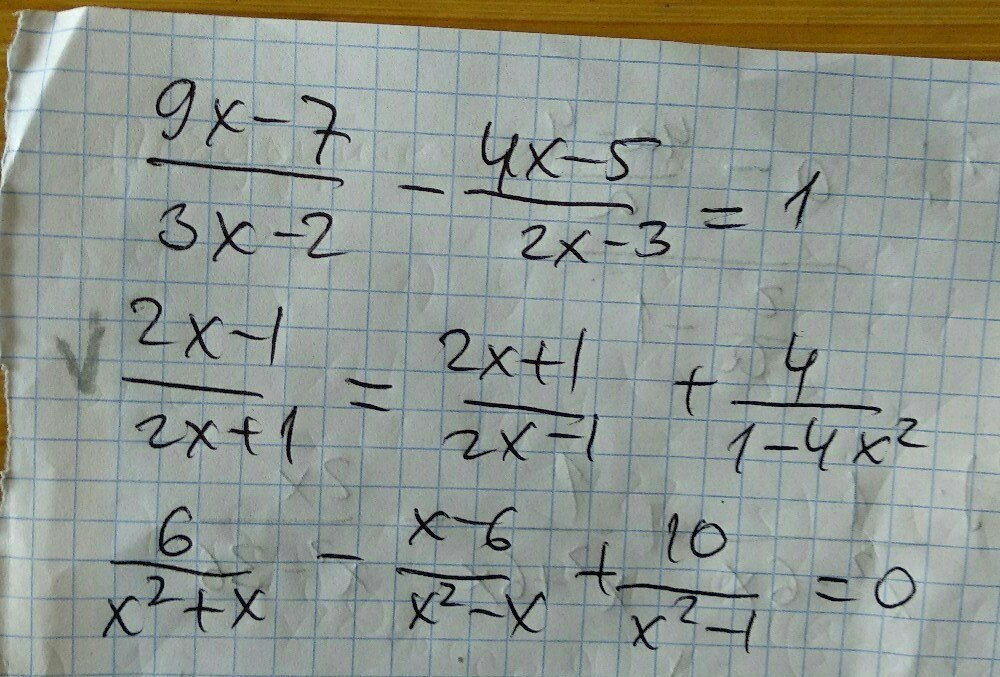 (9x-7)/(3x-2) - (4x-5)/(2x-3) = 1
V (2x-1)/(2x+1) = (2x+1)/(2x-1) + 4/(1-4x²)
6/(x²+x) - (x-6)/(x²-x) + 10/(x²-1) = 0